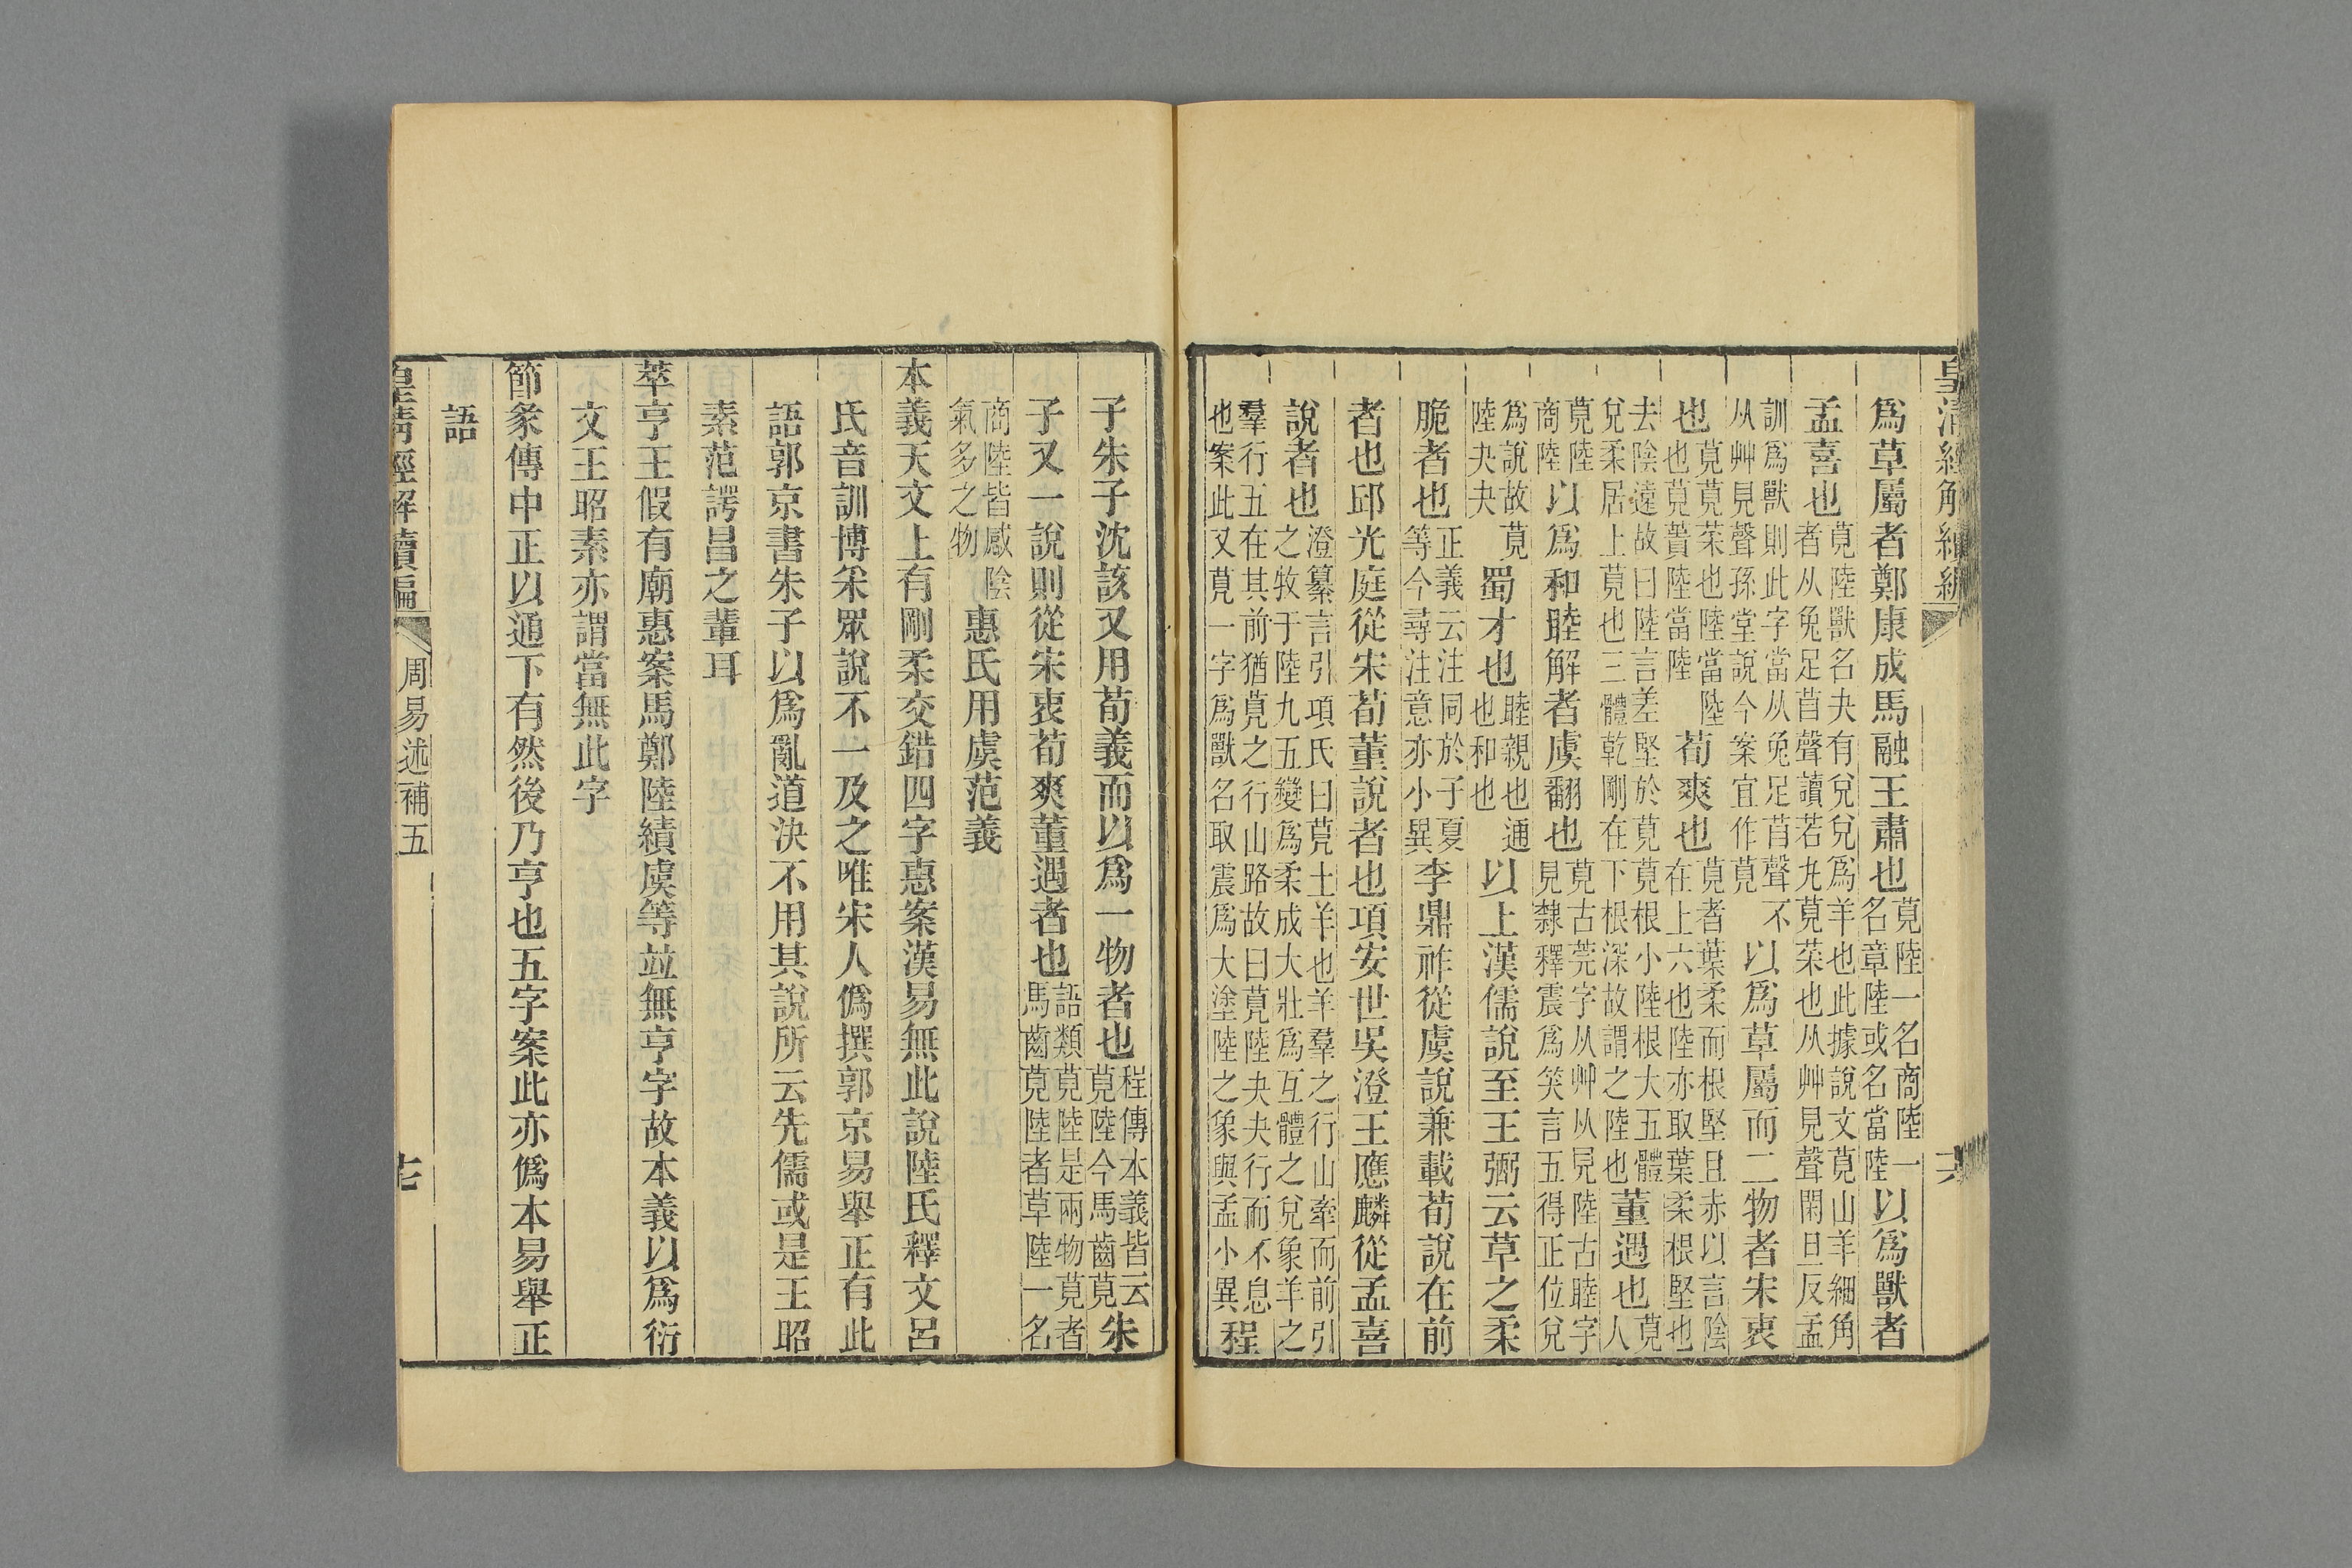 皇清經解續編
爲草屬者鄭康成馬融王肅也莧陸一名商陸一名章陸或名當陸以爲獸者
孟喜也莧陸獸名夬有兌兌爲羊也此據說文莧山羊細角者从兔足苜聲讀若丸莧菜也从艸見聲閑旦反孟
訓爲獸則此字當从兔足苜聲不从艸見聲孫堂說今案宜作莧以爲草屬而二物者宋衷
也莧莧菜也陸當陸也莧蕢陸當陸荀爽也莧者葉柔而根堅且赤以言陰在上六也陸亦取葉柔根堅也
去陰遠故曰陸言差堅於莧莧根小陸根大五體兌柔居上莧也三體乾剛在下根深故謂之陸也董遇也莧人
莧陸商陸以爲和睦解者虞翻也莧古莞字从艸从見陸古睦字見隸釋震爲笑言五得正位兌
爲說故莧陸夬夬蜀才也睦親也通也和也以上漢儒說至王弼云草之柔
脆者也正義云注同於子夏等今尋注意亦小異李鼎祚從虞說兼載荀說在前
者也邱光庭從宋荀董說者也項安世吳澄王應麟從孟喜
說者也澄纂言引項氏曰莧土羊也羊羣之行山牽而前引之牧于陸九五變爲柔成大壯爲互體之兌象羊之
羣行五在其前猶莧之行山路故曰莧陸夬夬行而不息也案此又莧一字爲獸名取震爲大塗陸之象與孟小異程
子朱子沈該又用荀義而以爲一物者也程傳本義皆云莧陸今馬齒莧朱
子又一說則從宋衷荀爽董遇者也語類莧陸是兩物莧者馬齒莧陸者草陸一名
商陸皆感陰氣多之物惠氏用虞范義
本義天文上有剛柔交錯四字惠案漢易無此說陸氏釋文呂
氏音訓博采眾說不一及之唯宋人僞撰郭京易舉正有此
語郭京書朱子以爲亂道決不用其說所云先儒或是王昭
素范諤昌之輩耳
萃亨王假有廟惠案馬鄭陸績虞等竝無亨字故本義以爲衍
文王昭素亦謂當無此字
節彖傳中正以通下有然後乃亨也五字案此亦僞本易舉正
語
皇清經解續編
周易述補五
七